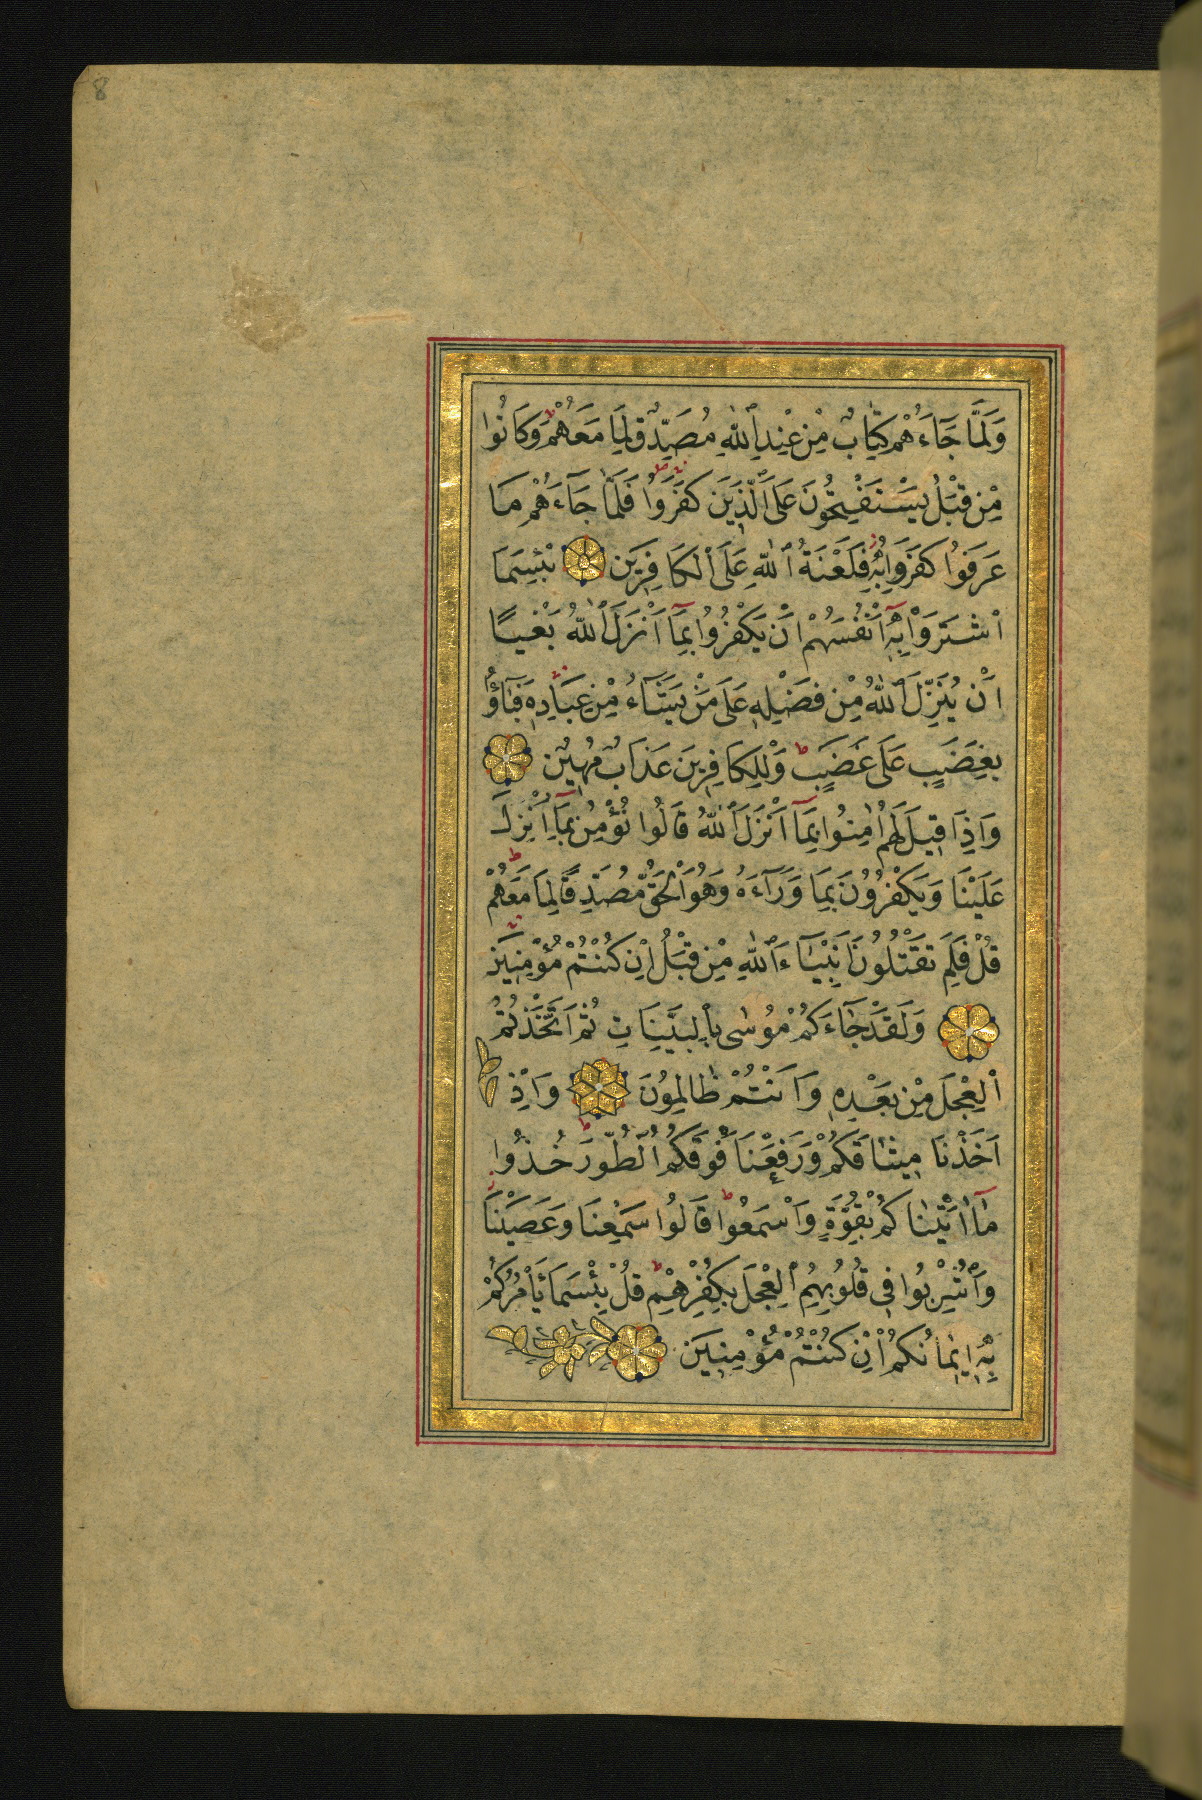 8
وَلَمَّا جَٓاءَهُمْ كِتَابٌ مِنْ عِنْدِ اللّٰهِ مُصَدِّقٌ لِمَا مَعَهُمْ وَكَانُوا
مِنْ قَبْلُ يَسْتَفْتِحُونَ عَلَى الَّذِينَ كَفَرُوا فَلَمَّا جَٓاءَهُمْ مَا
عَرَفُوا كَفَرُوا بِهِ فَلَعْنَةُ اللّٰهِ عَلَى الْكَافِرِينَ بِئْسَمَا
اشْتَرَوْا بِهِٓ اَنْفُسَهُمْ اَنْ يَكْفُرُوا بِمَٓا اَنْزَلَ اللّٰهُ بَغْيًا
اَنْ يُنَزِّلَ اللّٰهُ مِنْ فَضْلِهِ عَلَى مَنْ يَشَٓاءُ مِنْ عِبَادِهِ فَبَٓاؤُ
بِغَضَبٍ عَلَى غَضَبٍ ط وَلِلْكَافِرِينَ عَذَابٌ مُهِينٌ
وَاِذَا قِيلَ لَهُمْ اٰمِنُوا بِمَٓا اَنْزَلَ اللّٰهُ قَالُوا نُؤْمِنُ بِمَٓا اُنْزِلَ
عَلَيْنَا وَيَكْفُرُونَ بِمَا وَرَٓاءَهُ وَهُوَ الْحَقُّ مُصَدِّقًا لِمَا مَعَهُمْ ط
قُلْ فَلِمَ تَقْتُلُونَ اَنْبِيَٓاءَ اللّٰهِ مِنْ قَبْلُ اِنْ كُنْتُمْ مُؤْمِنِينَ
وَلَقَدْ جَٓاءَكُمْ مُوسٰى بِالْبَيِّنَاتِ ثُمَّ اتَّخَذْتُمُ
الْعِجْلَ مِنْ بَعْدِهِ وَاَنْتُمْ ظَالِمُونَ وَاِذْ
اَخَذْنَا مِيثَاقَكُمْ وَرَفَعْنَا فَوْقَكُمُ الطُّورَ ط خُذُوا
مَٓا اٰتَيْنَاكُمْ بِقُوَّةٍ وَاسْمَعُوا ط قَالُوا سَمِعْنَا وَعَصَيْنَا
وَاُشْرِبُوا فِى قُلُوبِهِمُ الْعِجْلَ بِكُفْرِهِمْ ط قُلْ بِئْسَمَا يَأْمُرُكُمْ
بِهِٓ اِيمَانُكُمْ اِنْ كُنْتُمْ مُؤْمِنِينَ